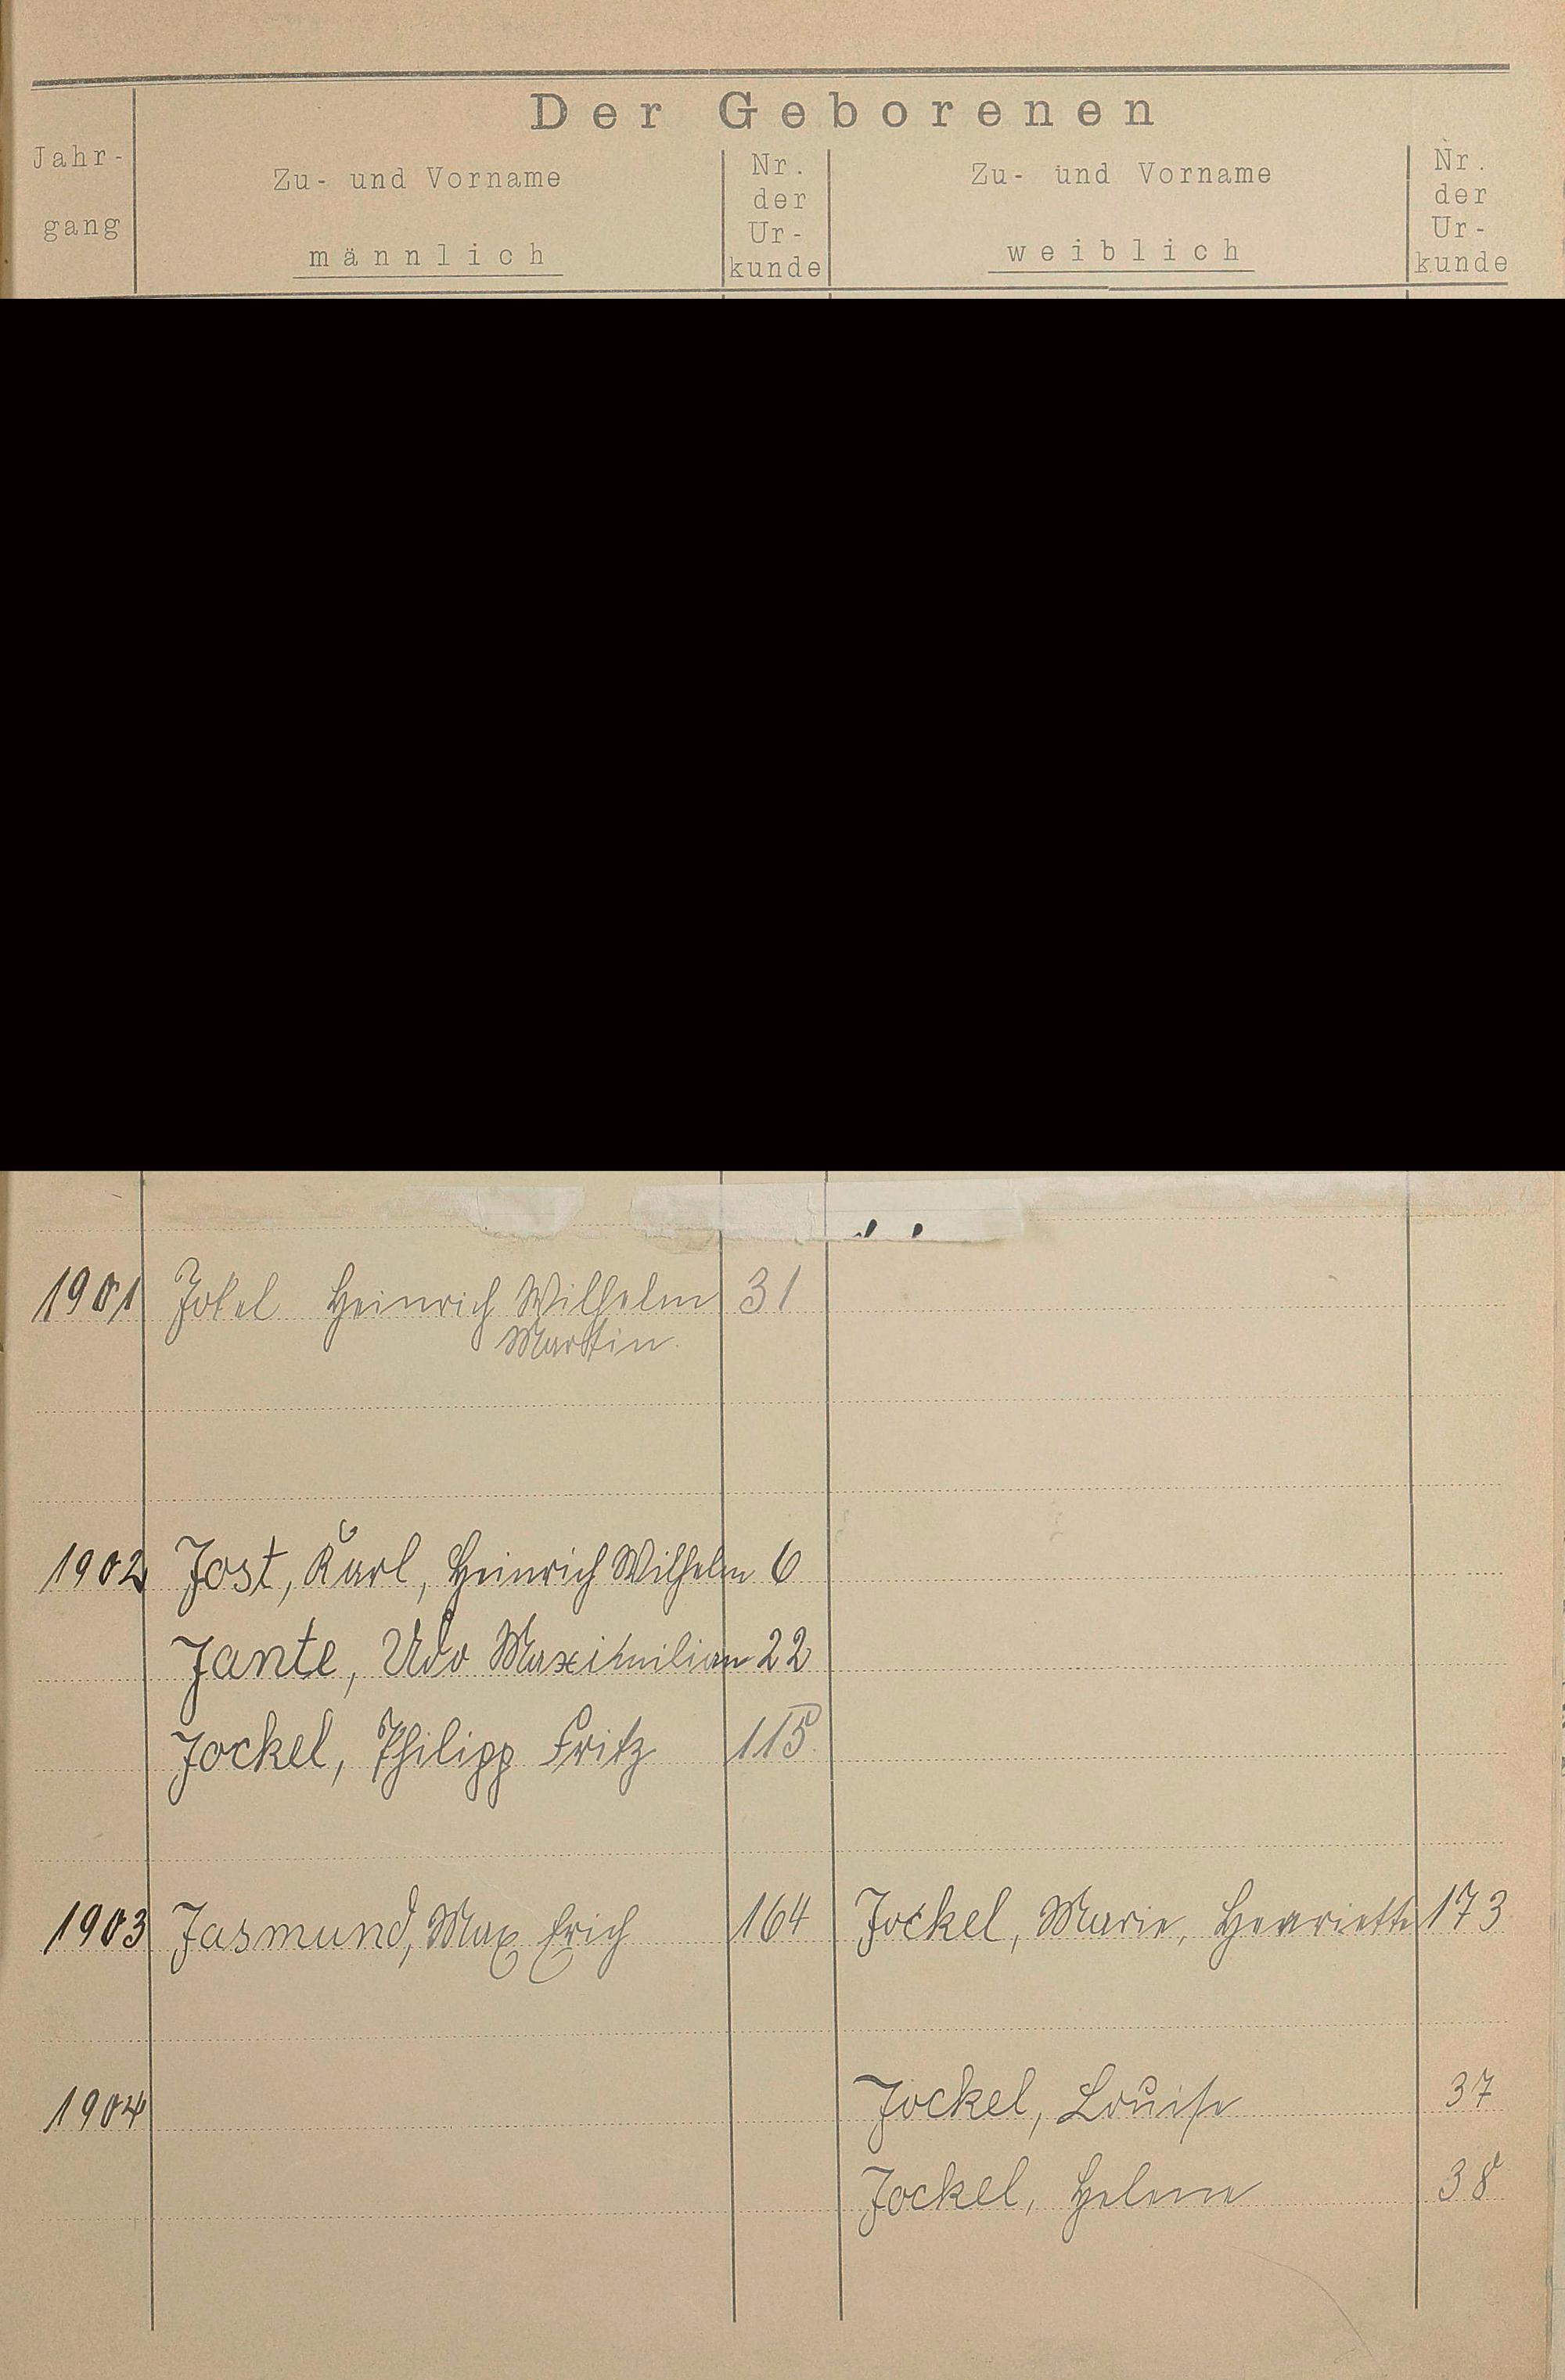 Der Geborenen
Jahr-
gang
Zu- und Vorname
männlich
Nr.
der
Ur-
kunde
Zu- und Vorname
weiblich
Nr.
der
Ur-
kunde
1901 Jokel Heinrich Wilhelm 31
Martin.
1902 Jost, Karl, Heinrich Wilhelm 6
Jante, Udo Maximilian 22
Jockel, Philipp Fritz 115
1903 Jasmund, Max Erich 164 Jockel, Marie, Henriette 173
1904 Jockel, Louise 37
Jockel, Helene 38